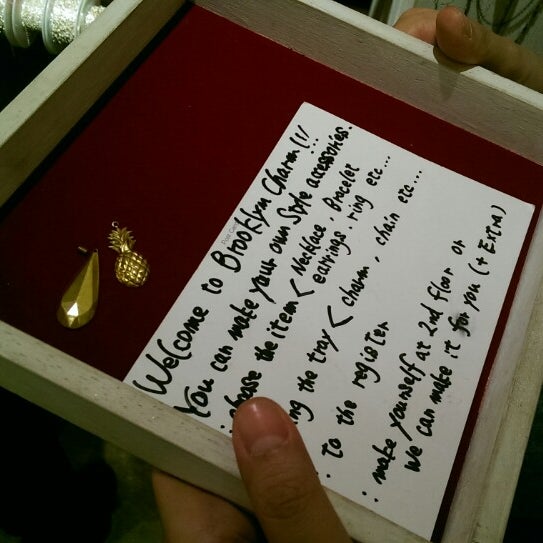 Post Card
Welcome to Brooklyn Charm!!!
You can make your own style accessories.
choose the item < Necklace, Bracelet
earrings. ring etc...
the tray < charm, chain etc...
. to the register
. make yourself at 2nd floor or
we can make it for you (+ Extra)